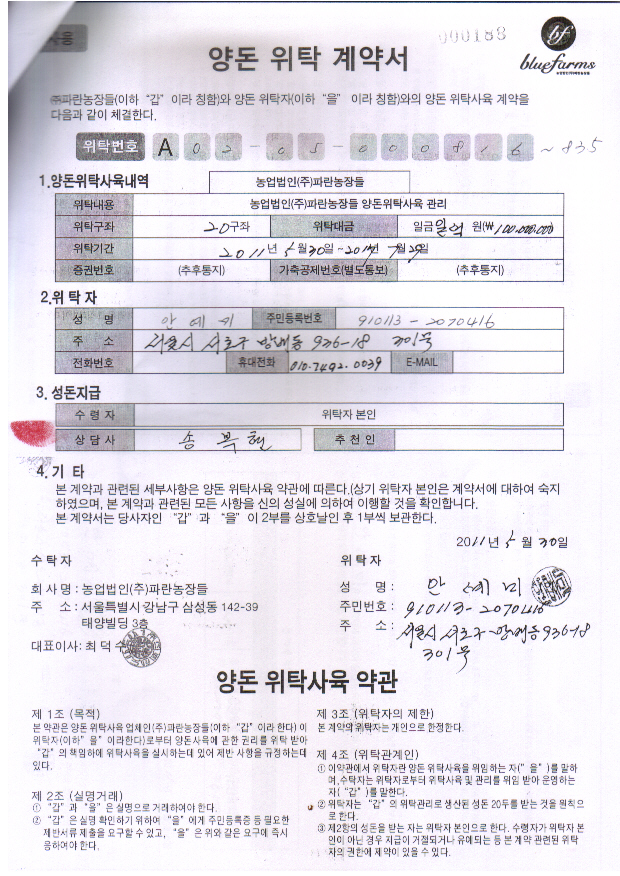 사용
양돈 위탁 계약서
000188
bf
bluefarms
㈜파란농장들(이하 “갑” 이라 칭함)와 양돈 위탁자(이하 “을” 이라 칭함)와의 양돈 위탁사육 계약을
다음과 같이 체결한다.
위탁번호 A 02-05-000816 ~ 835
1.양돈위탁사육내역 농업법인(주)파란농장들
위탁내용 농업법인(주)파란농장들 양돈위탁사육 관리
위탁구좌 20구좌 위탁대금 일금 일억 원(₩100,000,000)
위탁기간 2011년 5월 30일 ~ 년 7월 29일
증권번호 (추후통지) 가축공제번호(별도통보) (추후통지)
2.위 탁 자
성 명 안예미 주민등록번호 910113-2070416
주 소 서울시 서초구 방배동 936-18 301호
전화번호 휴대전화 010.7492.0039 E-MAIL
3. 성돈지급
수 령 자 위탁자 본인
상 담 사 송복현 추 천 인
4. 기 타
본 계약과 관련된 세부사항은 양돈 위탁사육 약관에 따른다.(상기 위탁자 본인은 계약서에 대하여 숙지
하였으며, 본 계약과 관련된 모든 사항을 신의 성실에 의하여 이행할 것을 확인합니다.
본 계약서는 당사자인 “갑” 과 “을” 이 2부를 상호날인 후 1부씩 보관한다.
2011년 5월 30일
수 탁 자
회 사 명 : 농업법인(주)파란농장들
주 소 : 서울특별시 강남구 삼성동 142-39
태양빌딩 3층
대표이사: 최 덕 수
위 탁 자
성 명 : 안예미
주민번호 : 910113-2070416
주 소 : 서울시 서초구 방배동 936-18
301호
양돈 위탁사육 약관
제 1조 (목적)
본 약관은 양돈 위탁사육 업체인(주)파란농장들(이하 “갑” 이라 한다) 이
위탁자(이하“을”이라한다)로부터 양돈사육에 관한 권리를 위탁 받아
“갑”의 책임하에 위탁사육을 실시하는데 있어 제반 사항을 규정하는데
있다.
제 2조 (실명거래)
① “갑” 과 “을” 은 실명으로 거래하여야 한다.
② “갑”은 실명 확인하기 위하여 “을” 에게 주민등록증 등 필요한
제반서류 제출을 요구할 수 있고, “을” 은 위와 같은 요구에 즉시
응하여야 한다.
제 3조 (위탁자의 제한)
본 계약의 위탁자는 개인으로 한정한다.
제 4조 (위탁관계인)
① 이약관에서 위탁자란 양돈 위탁사육을 위임하는 자(“을”)를 말하
며,수탁자는 위탁자로부터 위탁사육 및 관리를 위임 받아 운영하는
자(“갑”)를 말한다.
② 위탁자는 “갑” 의 위탁관리로 생산된 성돈 20두를 받는 것을 원칙으
로 한다.
③ 제2항의 성돈을 받는 자는 위탁자 본인으로 한다. 수령자가 위탁자 본
인이 아닌 경우 지급이 거절되거나 유예되는 등 본 계약 관련된 위탁
자의 권한에 제약이 있을 수 있다.